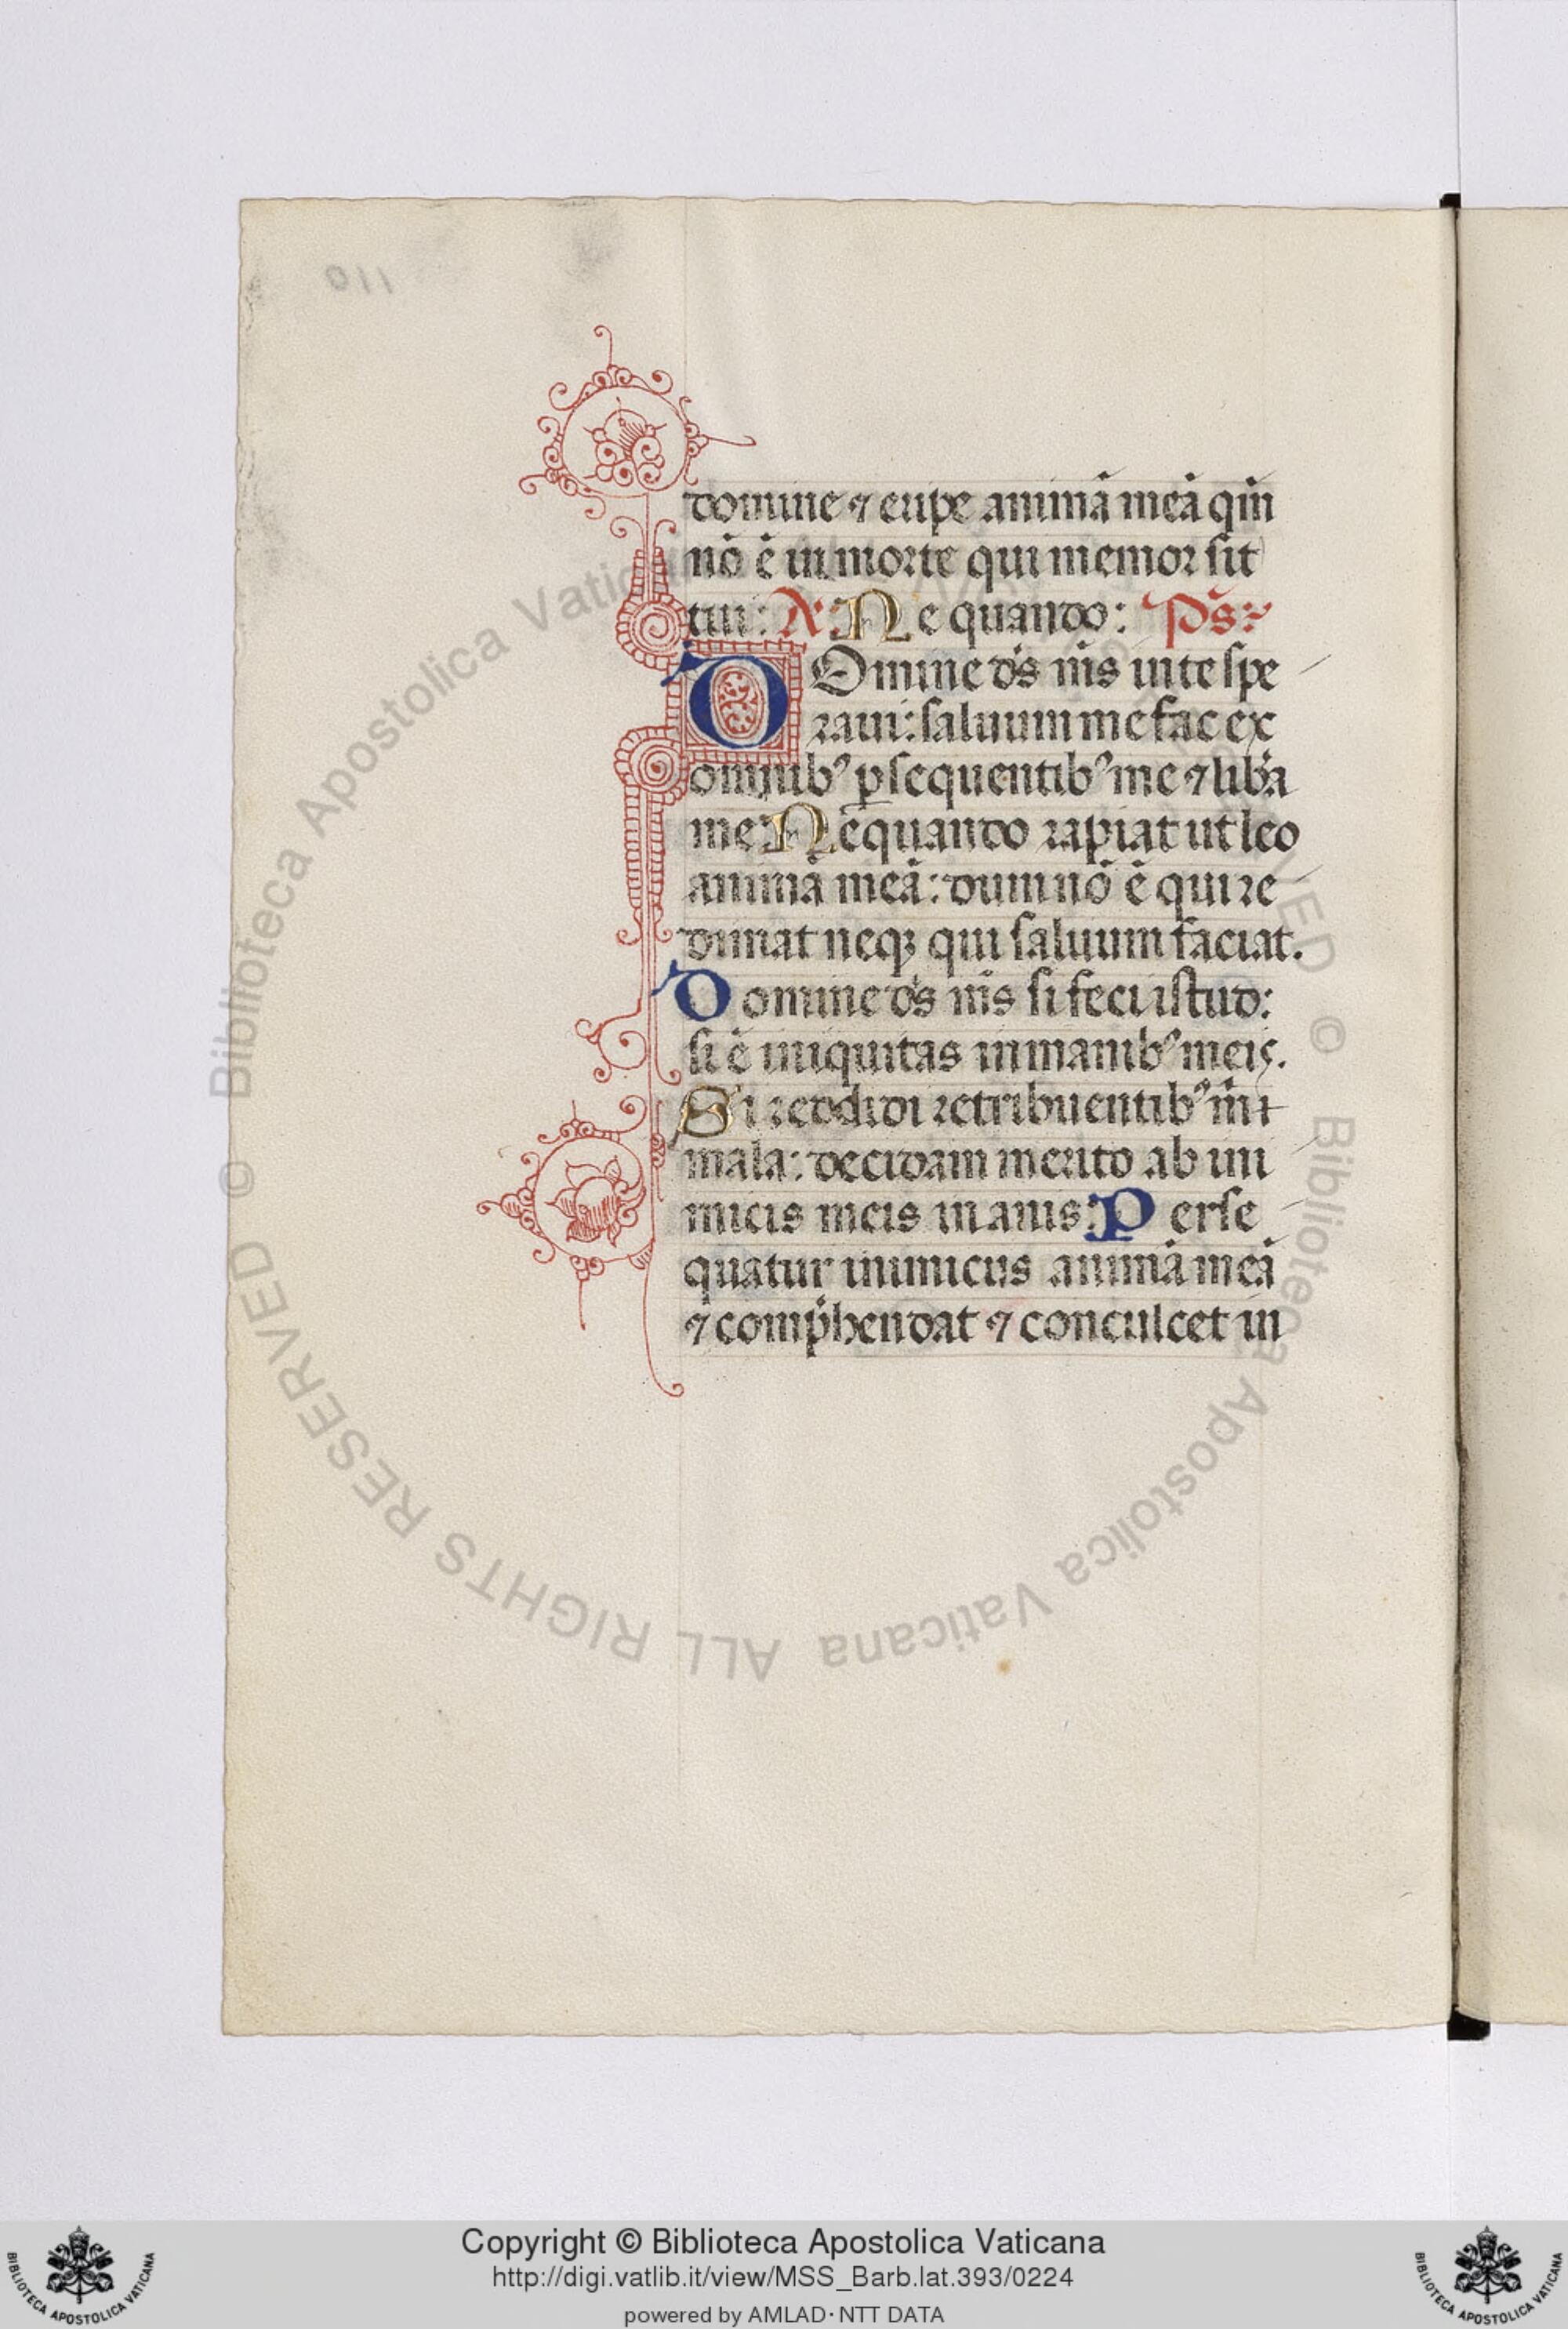 011
domine ⁊ eripe animā meā qm̄
nō ē in morte qui memor sit
tui: A Ne quando: Ps̄
DOmine ds̄ m̄s in te spe
raui: saluum me fac ex
omnibꝰ ꝑsequentibꝰ me ⁊ liba
me Ne quando rapiat ut leo
animā meā: dum nō ē qui re
dimat neqꝫ qui saluum faciat.
Domine ds̄ m̄s si feci istud:
si ē iniquitas in manibꝰ meis.
Si reddidi retribuentibꝰ m̄i
mala: decidam merito ab ini
micis meis inanis: Perse
quatur inimicus animā meā
⁊ comp̄hendat ⁊ conculcet in
© Biblioteca Apostolica Vaticana ALL RIGHTS RESERVED © Biblioteca Apostolica Vaticana
Copyright © Biblioteca Apostolica Vaticana
http://digi.vatlib.it/view/MSS_Barb.lat.393/0224
powered by AMLAD·NTT DATA
BIBLIOTECA APOSTOLICA VATICANA
BIBLIOTECA APOSTOLICA VATICANA